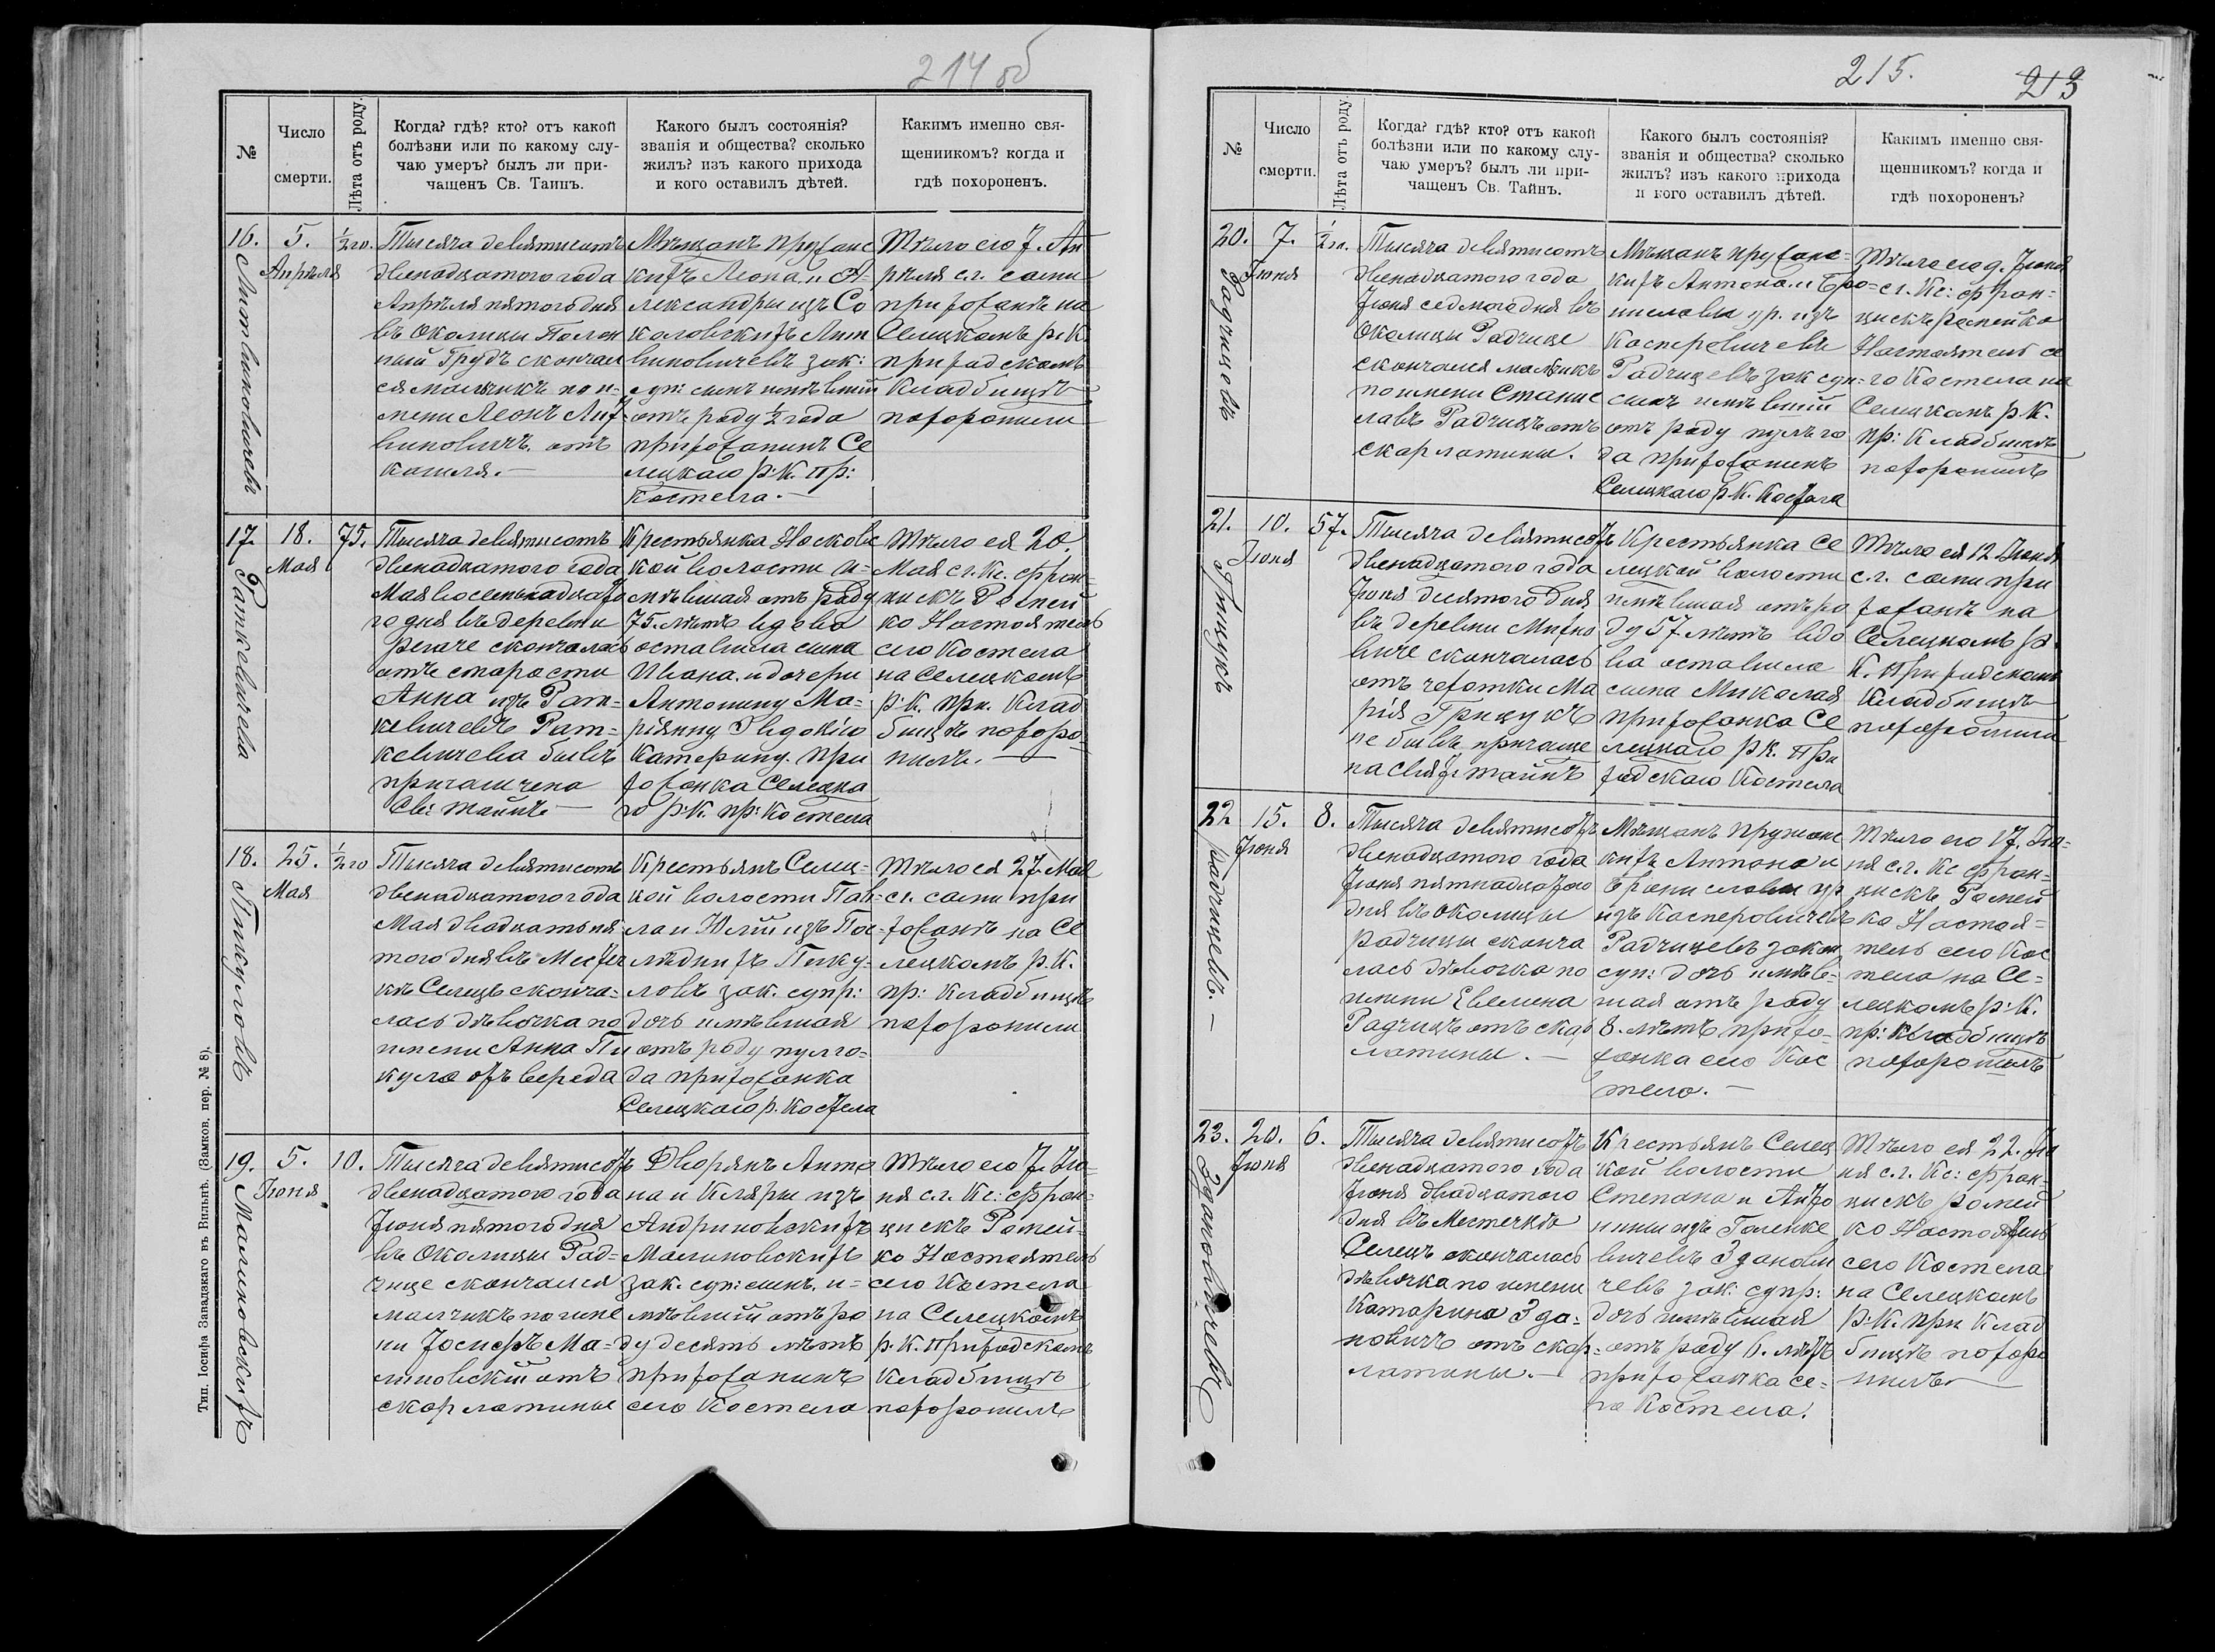 214 об
№
Число
смерти.
Лѣта отъ роду.
Когда? гдѣ? кто? отъ какой
болѣзни или по какому слу-
чаю умеръ? былъ ли при-
чащенъ Св. Таинъ.
Какого былъ состоянія?
званія и общества? сколько
жилъ? изъ какого прихода
и кого оставилъ дѣтей.
Какимъ именно свя-
щенникомъ? когда и
гдѣ похороненъ.
16.
Литвиновичевъ
5.
Апрѣля
½ го.
Тысяча девятисотъ
двенадцатого года
Апрѣля пятого дня
въ Околицы
Грудъ скончал
ся мальчикъ по и-
мени Леонъ Лит
виновичъ отъ
кашля.—
Мѣщанъ Пружанс
кихъ Леона и А-
лександры изъ Со
коловскихъ Лит
виновичевъ зак:
суп: сынъ имѣвшій
отъ роду ½ года
прихожанинъ Се
лецкаго р: К. пр:
Костела.—
Тѣло его 7. Ап
рѣля с.г. сами
прихожанѣ на
Селецкомъ р. К.
приходскомъ
кладбищѣ
похоронили
17.
Раткевичева
18.
Мая
75.
Тысяча девятисотъ
двенадцатого года
Мая восемьнадцато
го дня въ деревни
скончалась
отъ старости
Анна изъ Рат-
кевичевъ Рат=
кевичева бывъ
причащена
Св: Тайнъ—
Крестьянка Носковс
кой волости и-
мѣвшая отъ роду
75. лѣтъ вдова
оставила сына
Ивана. и дочери
Антонину Ма-
ріянну Эвдокію
Катерину. При
хожанка Селецка
го р: К. пр: Костела
Тѣло ея 20.
Мая с.г. Кс. Фран-
цискъ Ромей
ко Настоятель
сего Костела
на Селецкомъ
р. К. при. Клад
бищѣ похоро-
нилъ.—
18.
Пикуловъ
25.
Мая
½ го
Тысяча девятисотъ
двенадцатого года
Мая двадцать пя
того дня въ Местеч
кѣ Селецъ сконча-
лась дѣвочка по
имени Анна Пи
кула отъ вереда
Крестьянъ Селец-
кой волости Пав-
ла и Юліи изъ Пос-
лѣднихъ Пику-
ловъ зак. супр:
дочь имѣвшая
отъ роду пулго-
да прихожанка
Селецкаго р. Костела
Тѣло ея 27. Мая
с.г. сами при
хожанѣ на Се
лецкомъ р. К.
пр: Кладбищѣ
похоронили
19.
Малиновскихъ
5.
Іюня
10.
Тысяча девятисотъ
двенадцатого года
Іюня пятого дня
въ Околицы Рад-
чице скончался
мальчикъ по име
ни Іосифъ Ма-
линовскій отъ
скарлатины
Дворянъ Анто
на и Кляры изъ
Андриковскихъ
Малиновскихъ
зак. суп: сынъ. и-
мѣвшій отъ ро
ду десять лѣтъ
прихожанинъ
сего Костела
Тѣло его 7. Ію-
ня с.г. Кс: Фран-
цискъ Ромей-
ко Настоятель
сего Костела
на Селецкомъ
р. К. Приходскомъ
Кладбищѣ
похоронилъ
Тип. Іосифа Завадзкаго въ Вильнѣ. (Замков. пер. № 8).
215.
213
№
Число
смерти.
Лѣта отъ роду.
Когда? гдѣ? кто? отъ какой
болѣзни или по какому слу-
чаю умеръ? былъ ли при-
чащенъ Св. Тайнъ.
Какого былъ состоянія?
званія и общества? сколько
жилъ? изъ какого прихода
и кого оставилъ дѣтей.
Какимъ именно свя-
щенникомъ? когда и
гдѣ похороненъ?
20.
Радчицевъ
7.
Іюня
½ го.
Тысяча девятисотъ
двенадцатого года
Іюня седмого дня въ
Околицы Радчице
скончался мальчикъ
по имени Станис
лавъ Радчицъ отъ
скарлатины.
Мѣщанъ Пружанс-
кихъ Антона. и Бро-
ниславы ур. изъ
Касперовичевъ
Радчицевъ зак суп-
сынъ имѣвшій
отъ роду пулъ го
да прихожанинъ
Селецкаго р. К. Костела
Тѣло его 9. Іюня
с.г. Кс: Фран-
цискъ Ромейко
Настоятель се
го Костела на
Селецкомъ р. К.
пр: Кладбищѣ
похоронилъ
21.
Грицукъ
10.
Іюня
57.
Тысяча девятисотъ
двенадцатого года
Іюня десятого дня
въ деревни
скончалась
отъ чехотки Ма
рія Грицукъ
не бывъ причаще
на Свят. Тайнъ
Крестьянка Се
лецкой волости
имѣвшая отъ ро
ду 57 лѣтъ вдо
ва оставила
сына Миколая
прихожанка Се
лецкаго р. К. При
ходскаго Костела
Тѣло ея 12 Іюня
с.г. сами при
хожанѣ на
Селецкомъ р.
К. Приходскомъ
Кладбищѣ
похоронили
22.
Радчицевъ.—
15.
Іюня
8.
Тысяча девятисотъ
двенадцатого года
Іюня пятнадцатого
дня въ околицы
Радчицы сконча
лась дѣвочка по
имени Эвелина
Радчицъ отъ скар
латины.—
Мѣщанъ Пружанс
кихъ Антона и
Брониславы ур
изъ Касперовичевъ
Радчицевъ закон
суп: дочь имѣв-
шая отъ роду
8. лѣтъ прихо-
жанка сего Кос
тела.—
Тѣло его 17. Ію-
ня с.г. Кс Фран-
цискъ Ромей
ко Настоя-
тель сего Кос
тела на Се-
лецкомъ р: К.
пр: Кладбищѣ
похоронилъ
23.
Здановичевъ
20.
Іюня
6.
Тысяча девятисотъ
двенадцатого года
Іюня двадцатого
дня въ Местечкѣ
Селецъ скончалась
дѣвочка по имени
Катарина Зда-
новичъ отъ скар-
латины.—
Крестьянъ Селец
кой волости
Степана и Анто
нины изъ Голенке
вичевъ Зданови
чевъ зак: супр:
дочь имѣвшая
отъ роду 6. лѣтъ
прихожанка се-
го Костела.
Тѣло ея 22. Ію
ня с.г. Кс: Фран-
цискъ Ромей
ко Настоятель
сего Костела
на Селецкомъ
Р: К. при Клад
бищѣ похоро
нилъ—